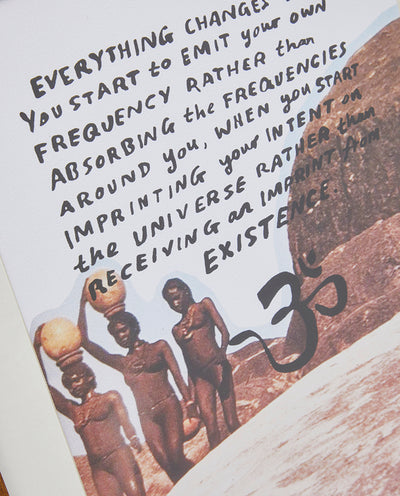 EVERYTHING CHANGES
YOU START to EMIT your OWN
FREQUENCY RATHER than
ABSORBING the FREQUENCIES
AROUND YOU, WHEN you START
IMPRINTING your INTENT on
the UNIVERSE RATHER than
RECEIVING an IMPRINT from
EXISTENCE
ॐ